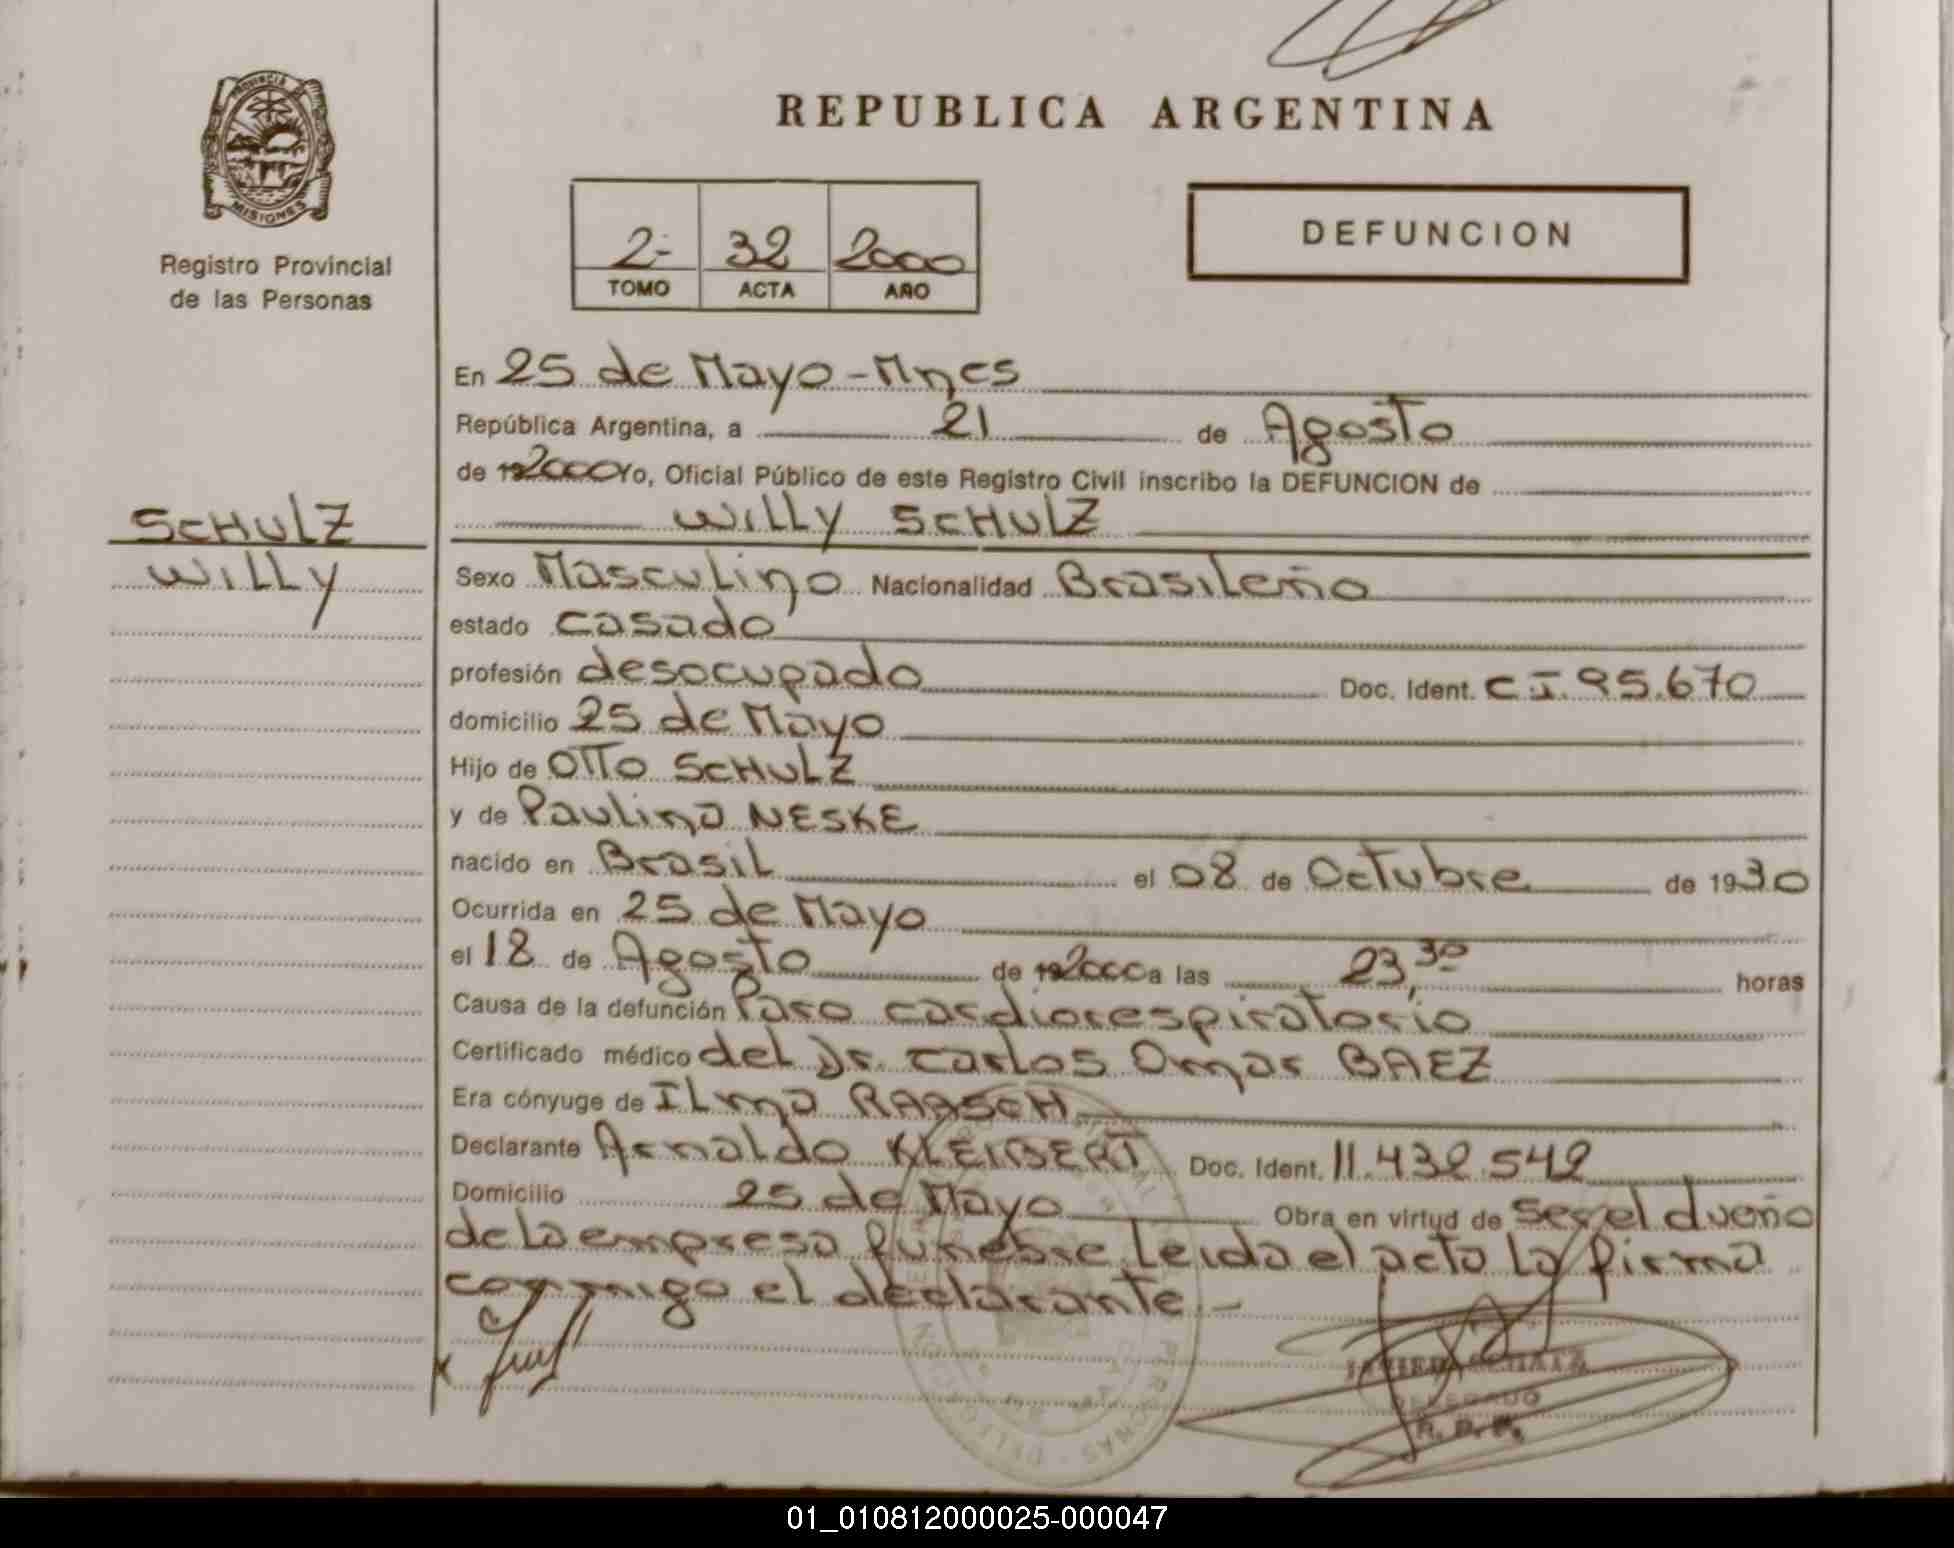 REPUBLICA ARGENTINA
PROVINCIA DE
MISIONES
Registro Provincial
de las Personas
2- 32 2000
TOMO ACTA AÑO
DEFUNCION
En 25 de Mayo - Mnes
República Argentina, a 21 de Agosto
de 192000 Yo, Oficial Público de este Registro Civil inscribo la DEFUNCION de
SCHULZ
WILLY
WILLY SCHULZ
Sexo Masculino Nacionalidad Brasileño
estado casado
profesión desocupado Doc. Ident. C.I. 95.670
domicilio 25 de Mayo
Hijo de OTTO SCHULZ
y de Paulina NESKE
nacido en Brasil el 08 de Octubre de 1930
Ocurrida en 25 de Mayo
el 18 de Agosto de 192000 a las 23,30 horas
Causa de la defunción Paro cardiorespiratorio
Certificado médico del Dr. Carlos Omar BAEZ
Era cónyuge de ILma RAASCH
Declarante Arnaldo KLEIBERT Doc. Ident. 11.432.542
Domicilio 25 de Mayo Obra en virtud de ser el dueño
de la empresa funebre Leida el acta la firma
conmigo el declarante.-
DELEGADO
R. P. P.
01_010812000025-000047